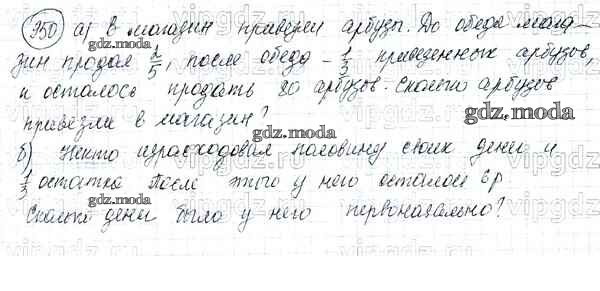 950 а) в магазин привезли арбузы. До обеда мага-
зин продал 2/5, после обеда – 1/3 привезенных арбузов,
и осталось продать 80 арбузов. Сколько арбузов
привезли в магазин?
б) Некто израсходовал половину своих денег и
1/3 остатка После этого у него осталось 6р
Сколько денег было у него первоначально?
gdz.moda
gdz.moda
gdz.moda
gdz.moda
gdz.moda
gdz.moda
gdz.moda
vipgdz
vipgdz
vipgdz